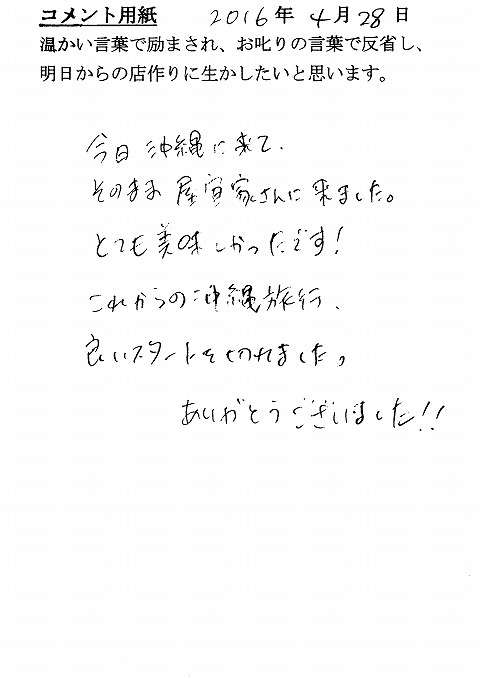 コメント用紙 2016年 4月28日
温かい言葉で励まされ、お叱りの言葉で反省し、
明日からの店作りに生かしたいと思います。
今日沖縄に来て、
そのまま 屋宜家さんに来ました。
とても美味しかったです!
これからの沖縄旅行、
良いスタートを切れました。
ありがとうございました!!